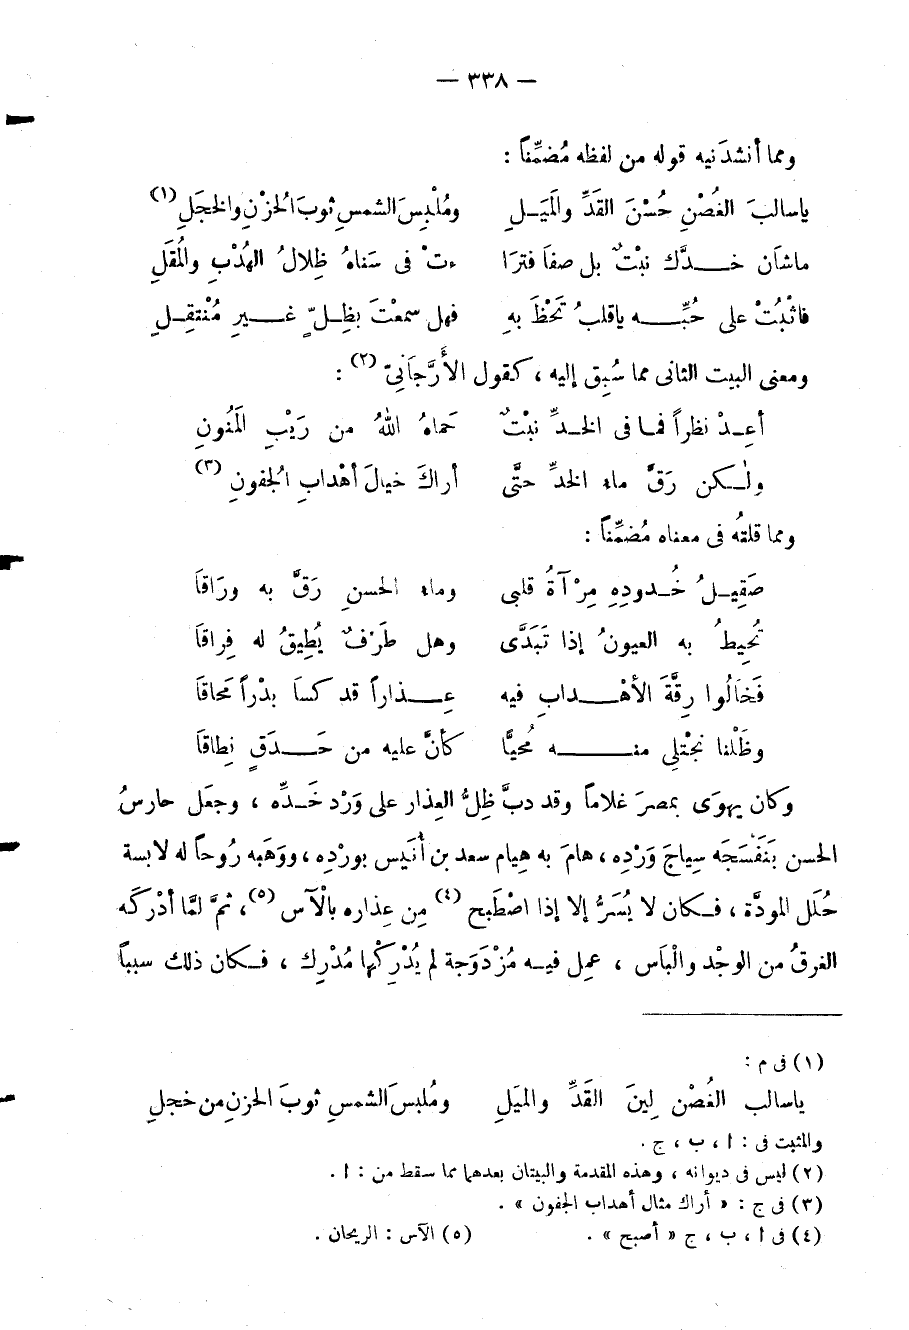 — ٣٣٨ —
ومما أنشدَنيه قوله من لفظه مُضمِّناً :
ياسالبَ الغُصْنِ حُسْنَ القَدِّ والَميَـلِ ومُلْبِسَ الشمسِ ثوبَ الُحزْنِ والخجَلِ (١)
ماشان خـــدَّك نبْتٌ بل صفاَ فترَا ءتْ فى سَناهُ ظِلالُ الهُدْبِ والُمقَلِ
فاثْبُتْ على حُبِّــه ياقلبُ تَحْظَ بهِ فهل سمعْتَ بظِـلّ غـــيرِ مُنْتقِـلِ
ومعنى البيت الثانى مما سُبِق إليه ، كقول الأَرَّجَانِىّ (٢) :
أعِـدْ نظراً فمـا فى الخـدِّ نبْتٌ حَماهُ اللهُ من رَيْبِ الَمنُونِ
ولٰـكن رَقَّ ماء الخدِّ حتَّى أراكَ خيالَ أهْدابِ الُجفونِ (٣)
ومما قلتهُ فى معناه مُضمِّناً :
صَقِيـلُ خُـدودِهِ مِرْآةُ قلبى وماء الحسنِ رَقَّ به ورَاقاَ
تُحِيطُ به العيونُ إذا تَبَدَّى وهل طَرْفٌ يُطِيقُ له فِراقاَ
فَخالُوا رِقَّةَ الأهْـــدابِ فيه عِـــذاراً قد كساَ بدْراً مَحاقاَ
وظَلْنا نجْتلِى منـــه مُحيًّا كأنَّ عليه من حَـــدَقٍ نِطاقاَ
وكان يهوَى بمصرَ غلاماً وقد دبَّ ظِلُّ العِذار على وَرْد خَـدِّه ، وجعَل حارسُ
الحسن بَنَفْسَجَه سِياجَ وَرْدِه ، هامَ به هِيام سعد بن أُنَيس بورْدِه ، ووَهَبه رُوحاً له لابسة
حُلَل المودَّة ، فـكان لا يُسَرُّ إلا إذا اصْطَبح (٤) مِن عِذاره بالْآس (٥) ، ثمَّ لمَّا أدْركَه
الغرقُ من الوجْد والْبَاس ، عمِل فيـه مُزْدَوَجة لم يُدْرِكْها مُدْرِك ، فـكان ذلك سبباً
(١) فى م :
ياسالب الغُصْن لِينَ القَدِّ والميَلِ ومُلبسَ الشمسِ ثوبَ الحزنِ من خجلِ
والمثبت فى : ا ، ب ، ج .
(٢) ليس فى ديوانه ، وهذه المقدمة والبيتان بعدها مما سقط من : ا .
(٣) فى ج : « أراك مثال أهداب الجفون » .
(٤) فى ا ، ب ، ج « أصبح » . (٥) الآس : الريحان .